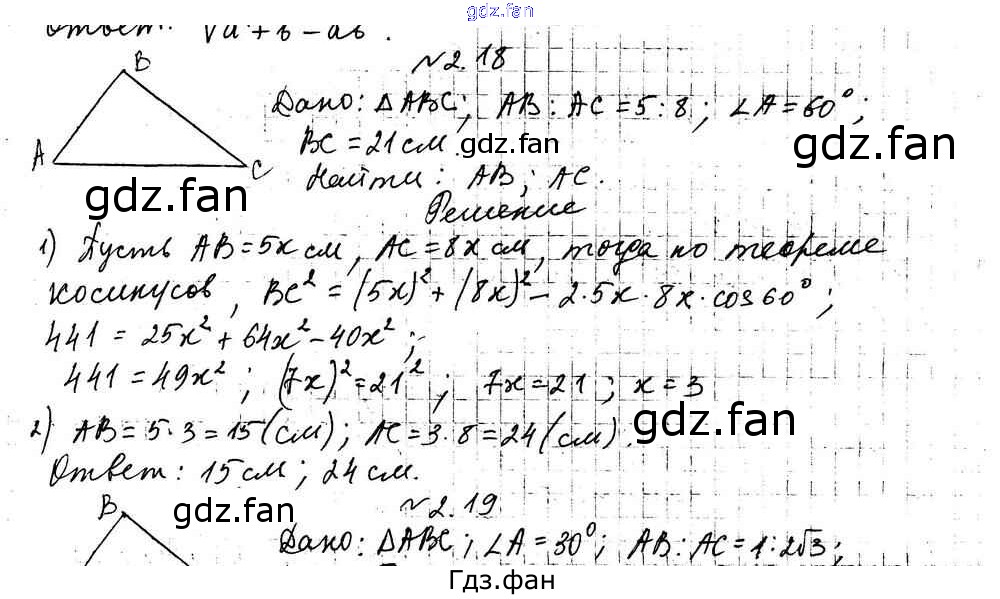 gdz.fan
Ответ: √a+b-ab.
№2.18
B
Дано: △ABC; AB:AC=5:8; ∠A=60°;
A
BC=21см.
gdz.fan
gdz.fan
C
Найти: AB; AC.
gdz.fan
Решение
1) Пусть AB=5x см, AC=8x см, тогда по теореме
косинусов, BC²=(5x)²+(8x)²-2·5x·8x·cos60°;
gdz.fan
441=25x²+64x²-40x²;
441=49x²; (7x)²=21²; 7x=21; x=3
gdz.fan
2) AB=5·3=15(см); AC=3·8=24(см).
Ответ: 15см; 24см.
№2.19
B
gdz.fan
Дано: △ABC; ∠A=30°; AB:AC=1:2√3;
Гдз.фан